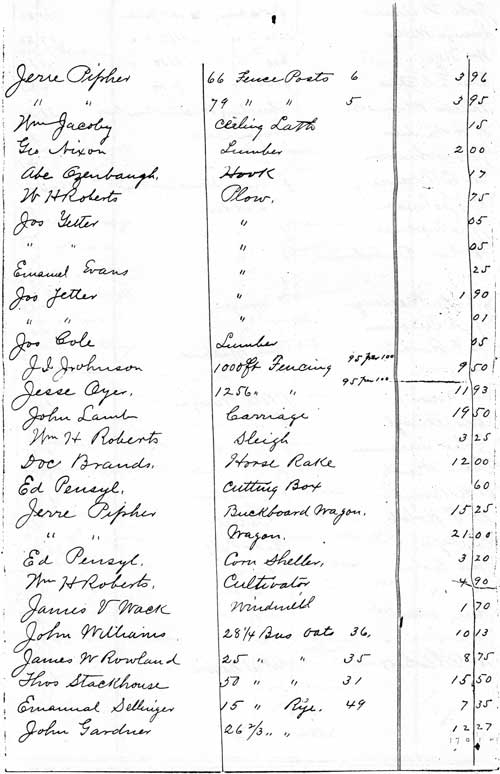 Jerre Pipher 66 Fence Posts 6 3 96
" " 79 " " 5 3 95
Wm Jacoby Ceiling Lath 15
Geo Nixon Lumber 2 00
Abe Ozenbaugh. Hook 17
W H Roberts Plow. 75
Jos Fetter " 05
" " " 05
Emanuel Evans " 25
Jos Fetter " 1 90
" " " 01
Jos Cole Lumber 05
J. I. Johnson 1000 ft Fencing 95 per 100 9 50
Jesse Oyer. 1256 " " 95 per 100 11 93
John Lamb Carriage 19 50
Wm H Roberts Sleigh 3 25
Doc Brands. Horse Rake 12 00
Ed Pensyl. Cutting Box 60
Jerre Pipher Buckboard Wagon. 15 25
" " Wagon. 21 00
Ed Pensyl. Corn Sheller, 3 20
Wm H Roberts. Cultivator 4 90
James V Wack Windmill 1 70
John Williams 28 1/4 Bus Oats 36. 10 13
James W Rowland 25 " " 35 8 75
Thos Stackhouse 50 " " 31 15 50
Emannal Sellinger 15 " Rye. 49 7 35
John Gardner 26 2/3 " " 12 27